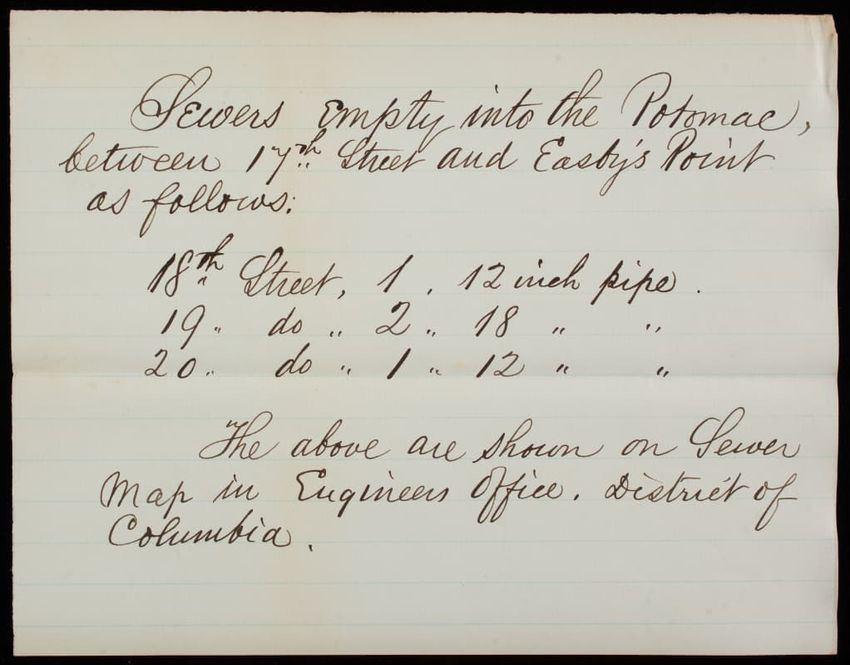 Sewers empty into the Potomac,
between 17th Street and Easby's Point
as follows:
18th Street, 1, 12 inch pipe.
19 " do " 2 " 18 " "
20 " do " 1 " 12 " "
The above are shown on Sewer
Map in Engineers Office. District of
Columbia.